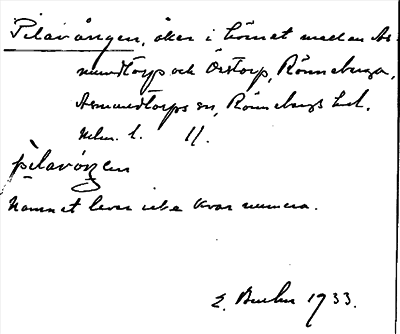 Pilavången, åker i hörnet mellan As-
mundtorp och Örstorp, Rönneberga,
Asmundtorps sn, Rönnebergs hd.
Mlm. l. 11.
pilavången
Namnet lever icke kvar numera.
E. 1933.